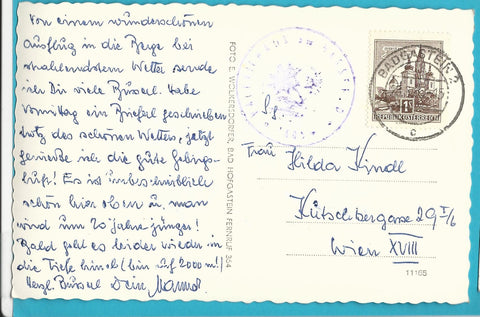 Von einem wunderschönen
Ausflug in die Berge bei
strahlendstem Wetter sende
ich Dir viele Bussel. Habe
vormittag ein Brieferl geschrieben
trotz des schönen Wetters, jetzt
genieße ich die gute Gebirgs-
luft! Es ist unbeschreiblich
schön hier oben u. man
wird um 20 Jahre jünger!
Bald geht es leider wieder in
die Tiefe hinab (bin auf 2000 m!)
Herzl. Bussel Dein
FOTO E. WOLKERSDORFER, BAD HOFGASTEIN FERNRUF 364
BADGASTEIN 2
c
REPUBLIK ÖSTERREICH
Frau
Hilda Kindl
Kutschkergasse 29 I/6
Wien XVIII
11165